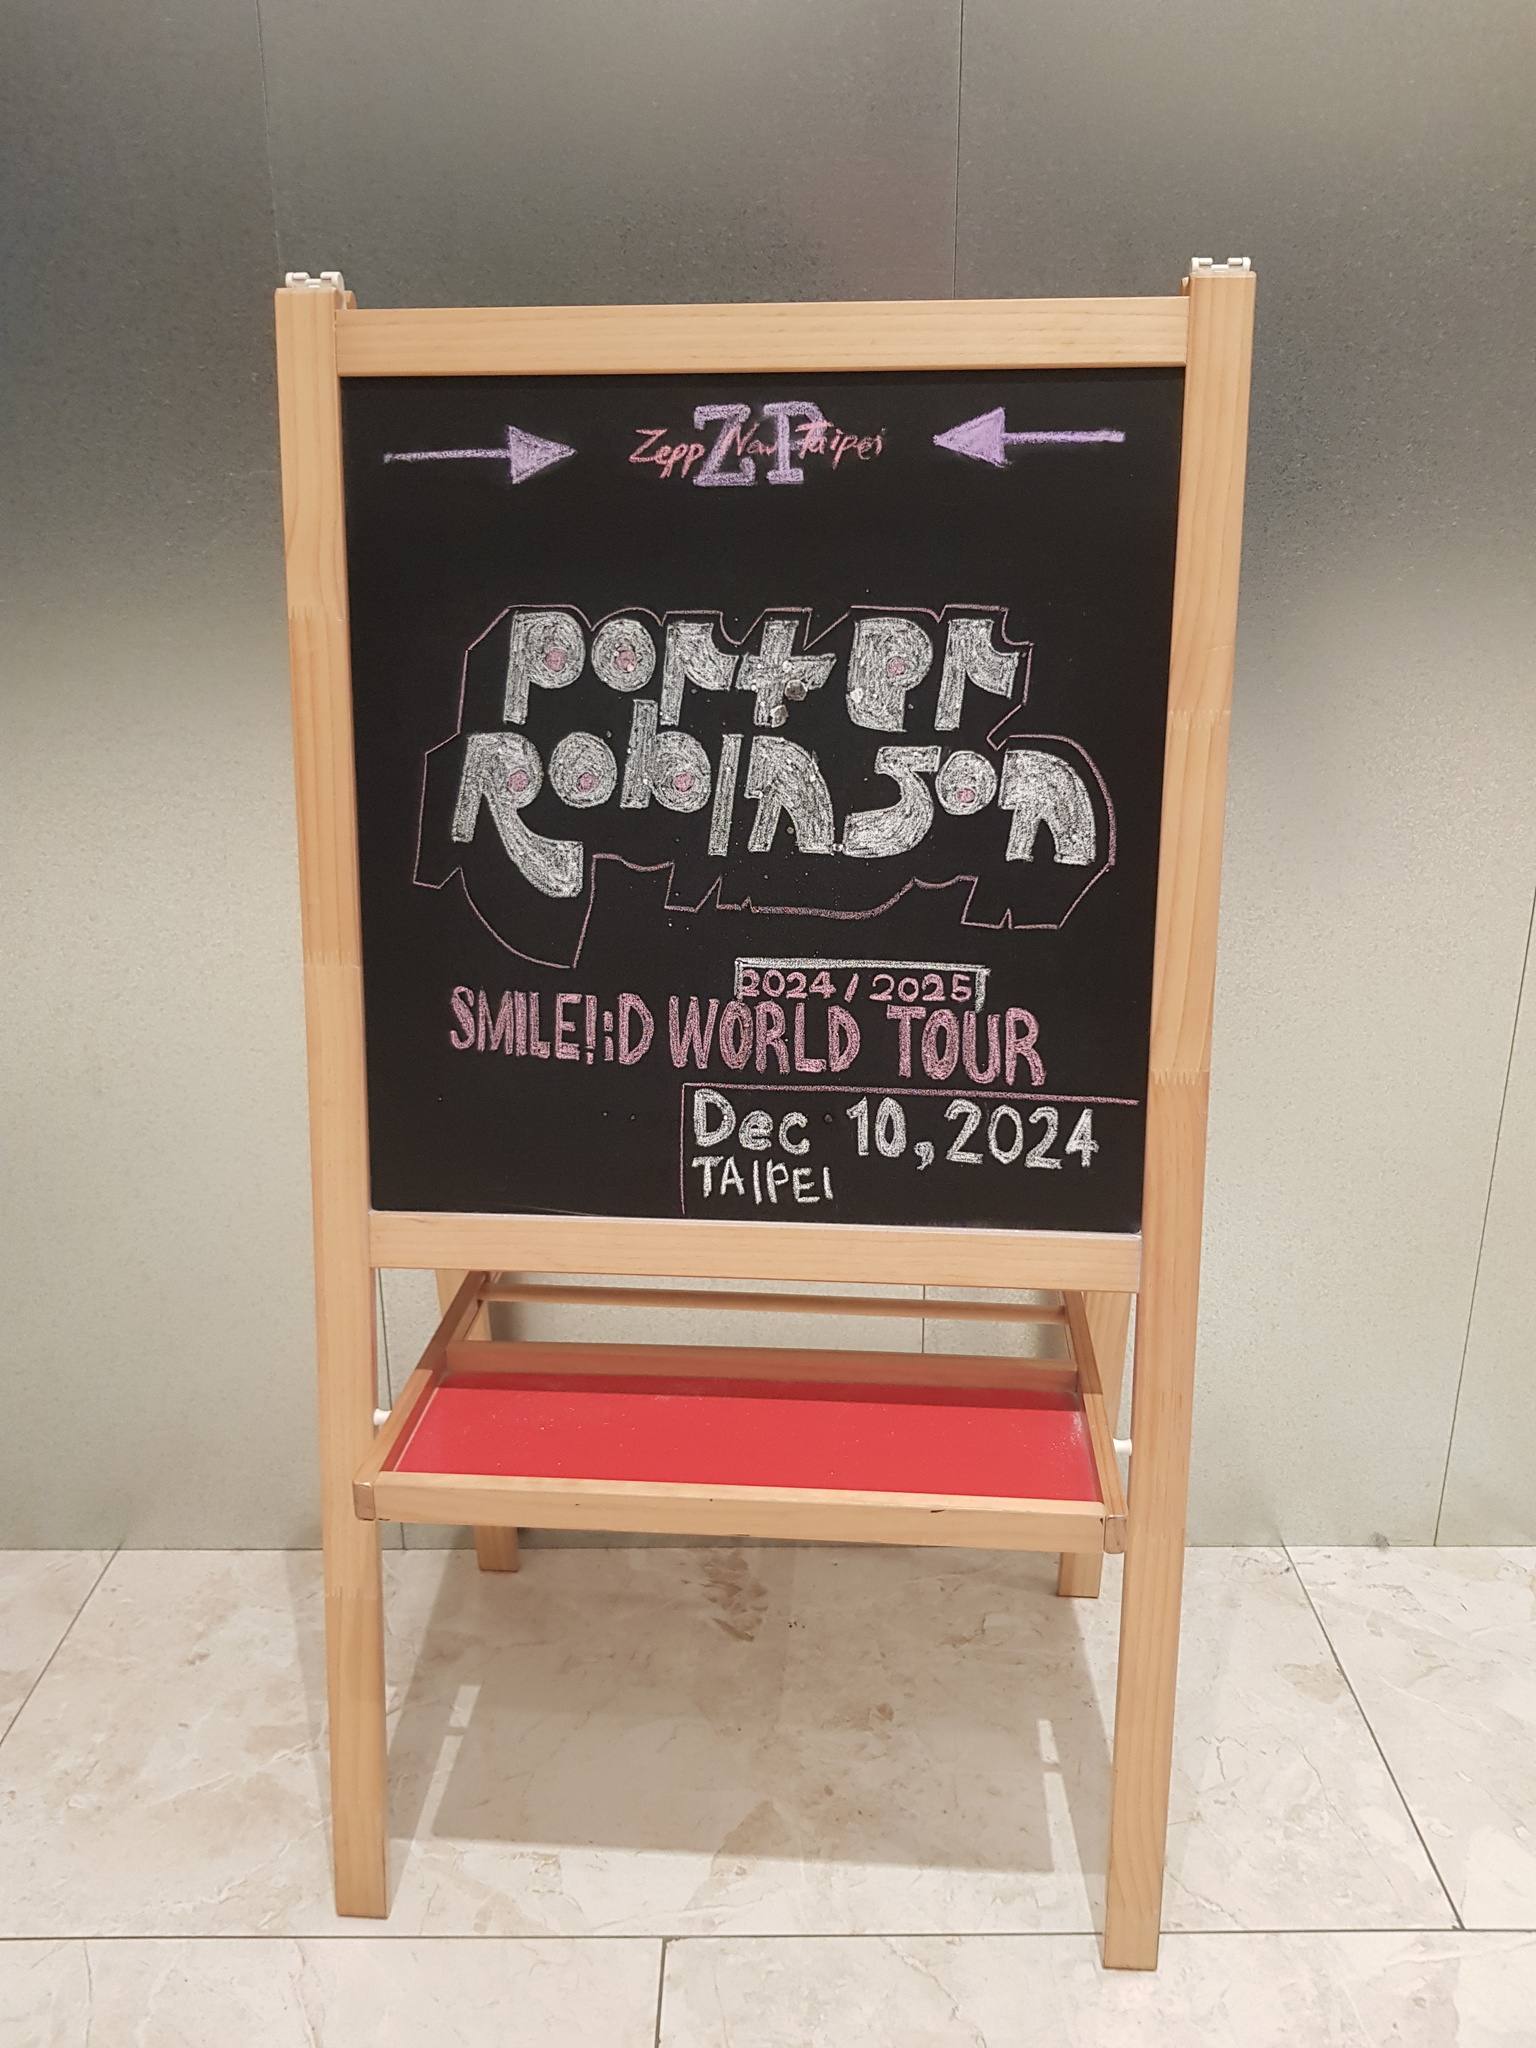 ZP
Zepp New Taipei
Porter
Robinson
2024/2025
SMILE!:D WORLD TOUR
Dec 10, 2024
TAIPEI